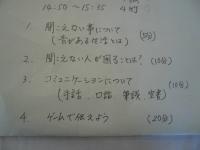 14:50〜15:35
1. 聞こえない事について
(音がある生活とは) (5分)
2. 聞こえない人が困ることは? (15分)
3. コミュニケーションについて
(手話、口話 筆談 空書) (10分)
4 ゲームで伝えよう (20分)